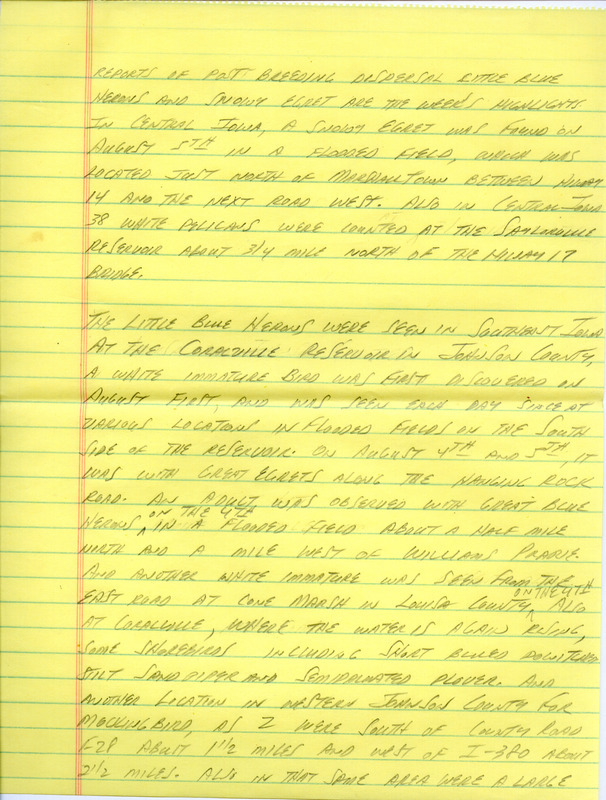 REPORTS OF POST BREEDING DISPERSAL LITTLE BLUE
HERONS AND SNOWY EGRET ARE THE WEEK'S HIGHLIGHTS
IN CENTRAL IOWA, A SNOWY EGRET WAS FOUND ON
AUGUST 5TH IN A FLOODED FIELD, WHICH WAS
LOCATED JUST NORTH OF MARSHALLTOWN BETWEEN HIWAY
14 AND THE NEXT ROAD WEST. ALSO IN CENTRAL IOWA
38 WHITE PELICANS WERE COUNTED AT THE SAYLORVILLE
RESERVOIR ABOUT 3/4 MILE NORTH OF THE HIWAY 17
BRIDGE.
THE LITTLE BLUE HERONS WERE SEEN IN SOUTHEAST IOWA
AT THE CORALVILLE RESERVOIR IN JOHNSON COUNTY,
A WHITE IMMATURE BIRD WAS FIRST DISCOVERED ON
AUGUST FIRST, AND WAS SEEN EACH DAY SINCE AT
VARIOUS LOCATIONS IN FLOODED FIELDS ON THE SOUTH
SIDE OF THE RESERVOIR. ON AUGUST 4TH AND 5TH, IT
WAS WITH GREAT EGRETS ALONG THE HANGING ROCK
ROAD. AN ADULT WAS OBSERVED WITH GREAT BLUE
HERONS ON THE 4TH IN A FLOODED FIELD ABOUT A HALF MILE
NORTH AND A MILE WEST OF WILLIAMS PRAIRIE.
AND ANOTHER WHITE IMMATURE WAS SEEN FROM THE
EAST ROAD AT CONE MARSH IN LOUISA COUNTY ON THE 4TH. ALSO
AT CORALVILLE, WHERE THE WATER IS AGAIN RISING,
SOME SHOREBIRDS INCLUDING SHORT BILLED DOWITCHER
STILT SANDPIPER AND SEMIPALMATED PLOVER. AND
ANOTHER LOCATION IN WESTERN JOHNSON COUNTY FOR
MOCKINGBIRD, AS 2 WERE SOUTH OF COUNTY ROAD
F-28 ABOUT 1 1/2 MILES AND WEST OF I-380 ABOUT
2 1/2 MILES. ALSO IN THAT SAME AREA WERE A LARGE